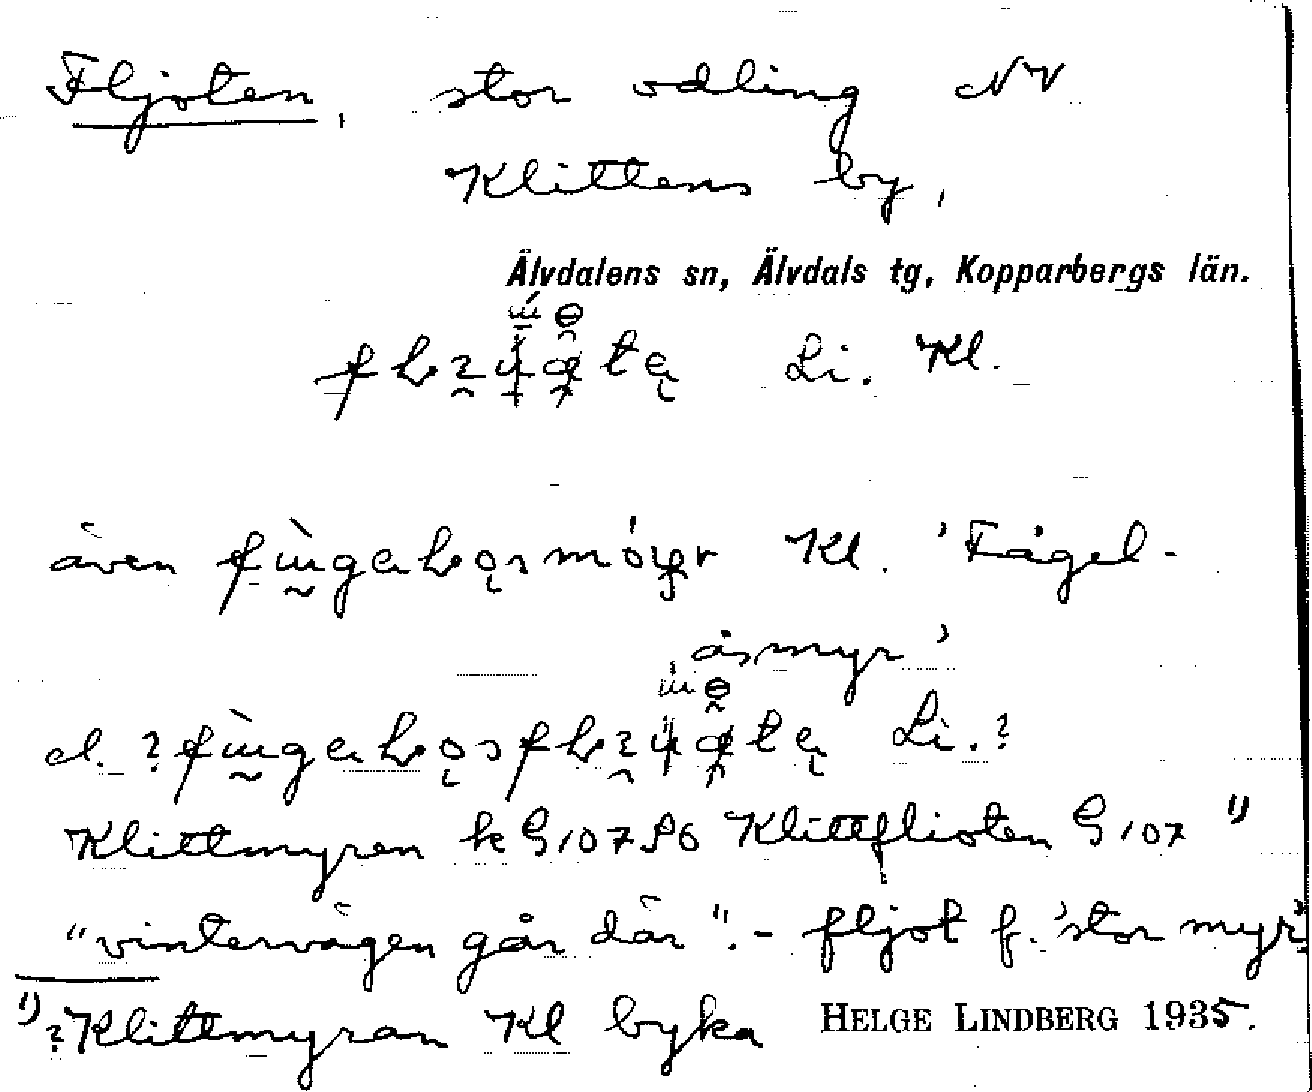 Fljoten, stor odling NV
Klittens by,
Älvdalens sn, Älvdals tg, Kopparbergs län.
Li. Kl.
även Kl. 'Fågel-
åsmyr'
el. ? Li.?
Klittmyren k G107 S6 Klittflioten G107 1)
"vintervägen går där". - fljot f. 'stor myr'
1) ?Klittmyran Kl byka HELGE LINDBERG 1935.